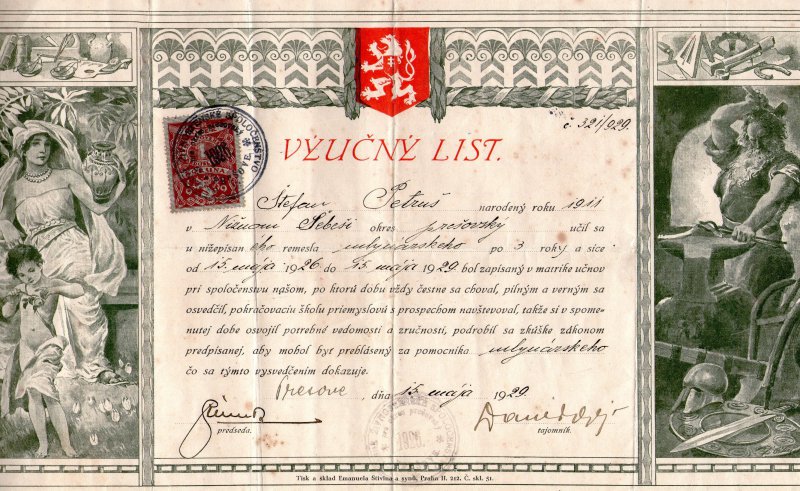 č 321/929.
VÝUČNÝ LIST.
Štefan Petruš narodený roku 1911
v Nižnom Šebeši okres prešovský učil sa
u nižepísaného remesla mlynárskeho po 3 roky a síce
od 15. mája 1926 do 15. mája 1929 bol zapísaný v matrike učnov
pri spoločenstvu našom, po ktorú dobu vždy čestne sa choval, pilným a verným sa
osvedčil, pokračovaciu školu priemyslovú s prospechom navštevoval, takže si v spome-
nutej dobe osvojil potrebné vedomosti a zručnosti, podrobil sa zkúške zákonom
predpísanej, aby mohol byt prehlásený za pomocníka mlynárskeho
čo sa týmto vysvedčením dokazuje.
Prešove, dňa 15. mája 1929
predseda.
tajomník.
Tisk a sklad Emanuela Stivína a synů, Praha II. 212. Č. skl. 51.